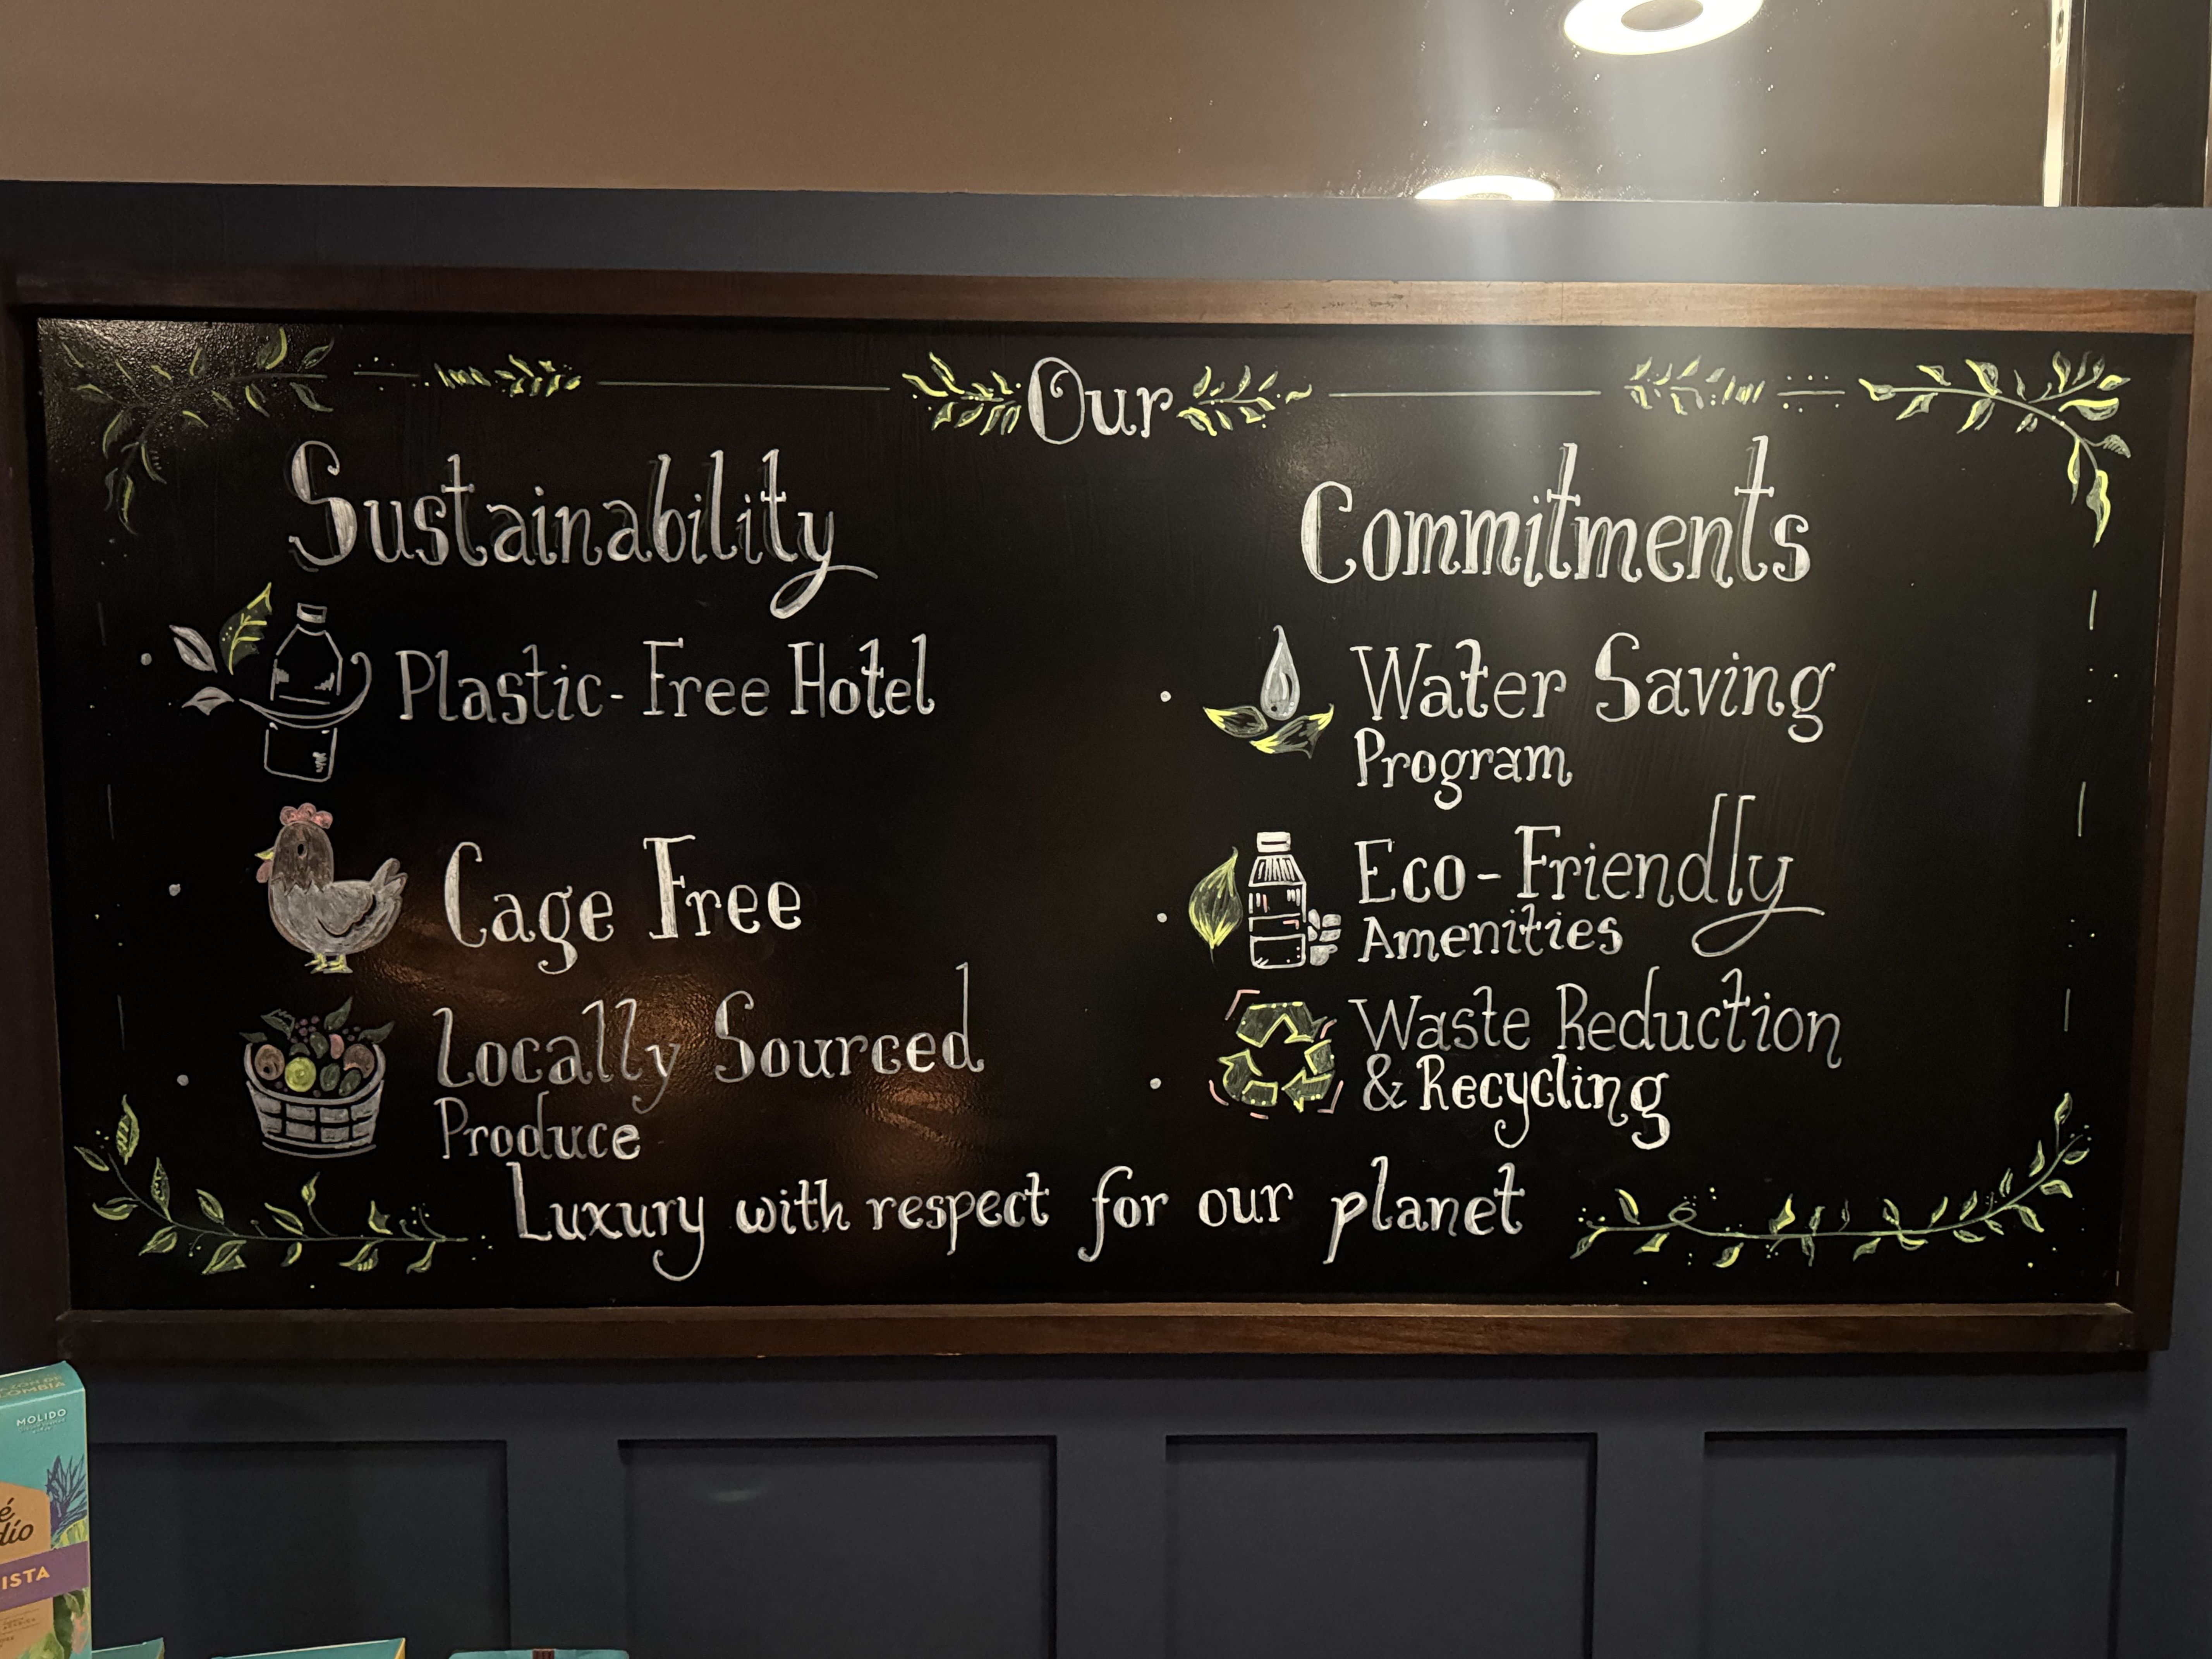 Our
Sustainability Commitments
Plastic-Free Hotel
Cage Free
Locally Sourced
Produce
Water Saving
Program
Eco-Friendly
Amenities
Waste Reduction
& Recycling
Luxury with respect for our planet
MOLIDO
ISTA